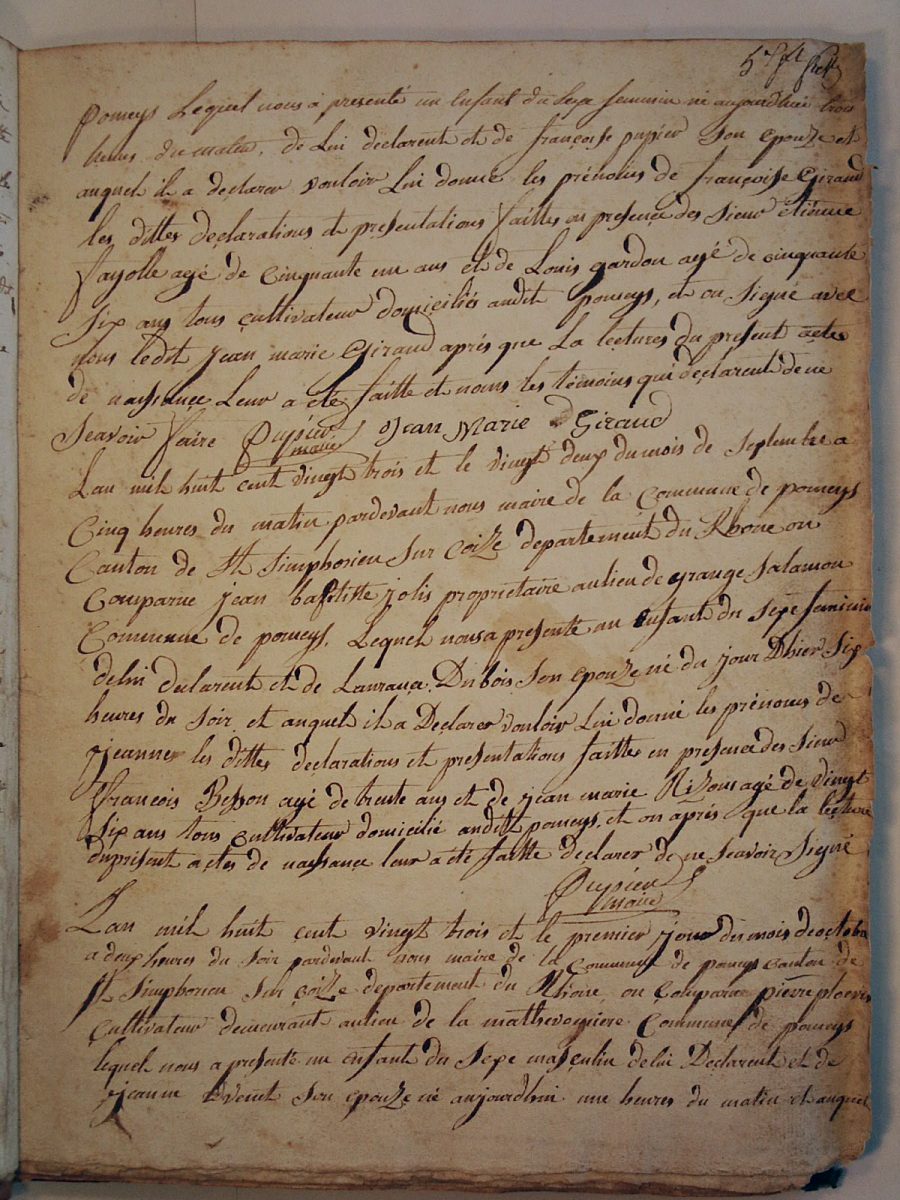 5
pomeys Lequel nous a presenté un Enfant du Sexe feminin né aujourdhui trois
heures du matin, de Lui declarent et de françoise pupier Son Epouze et
auquel il a declarer vouloir Lui donné les prénoms de françoise Giraud
les dittes declarations et presentations faittes en presence des Sieur étienne
fayolle agé de Cinquante un ans et de Louis gardon agé de cinquante
Six ans tous cultivateur domiciliés audit pomeys, et on Signé avec
nous ledit jean marie Giraud après que La lectures du present actes
de naissance Leur a eté faitte et noms les témoins qui declarent de ne
Seavoir faire Pupier maire Jean Marie Giraud
Lan mil huit cent vingt trois et le vingt deux du mois de Septembre a
Cinq heures du matin pardevant nous maire de la Commune de pomeys
Canton de St Simphorien Sur Coize departement du Rhone on
Comparue jean baptiste jolis propriétaire au lieu de grange Salamon
Commune de pomeys. Lequel nous a presenté un Enfant du Sexe feminin
de lui declarent et de Lauranca Dubois Son Epouze né du jour Dhier Six
heures du Soir et auquel il a Declarer vouloir Lui donné les prénoms de
jeanne les dittes declarations et presentations faittes en presence des Sieur
françois Besson agé de trente ans et de jean marie agé de vingt
Six ans tous Cultivateur domicilié audit pomeys. et on après que la lecture
du présent actes de naissance leur a eté faitte declarer de ne Seavoir Signé
Pupier maire
Lan mil huit cent vingt trois et le premier jour du mois de octobre
a deux heures du Soir pardevant nous maire de la Commune de pomeys canton de
St Simphorien Sur Coize departement du Rhone on Comparue pierre
Cultivateur demeurant au lieu de la Commune de pomeys
lequel nous a presenté un enfant du Sexe masculin de lui Declarent et de
jeanne Son Epouze né aujourdhui une heures du matin et auquel